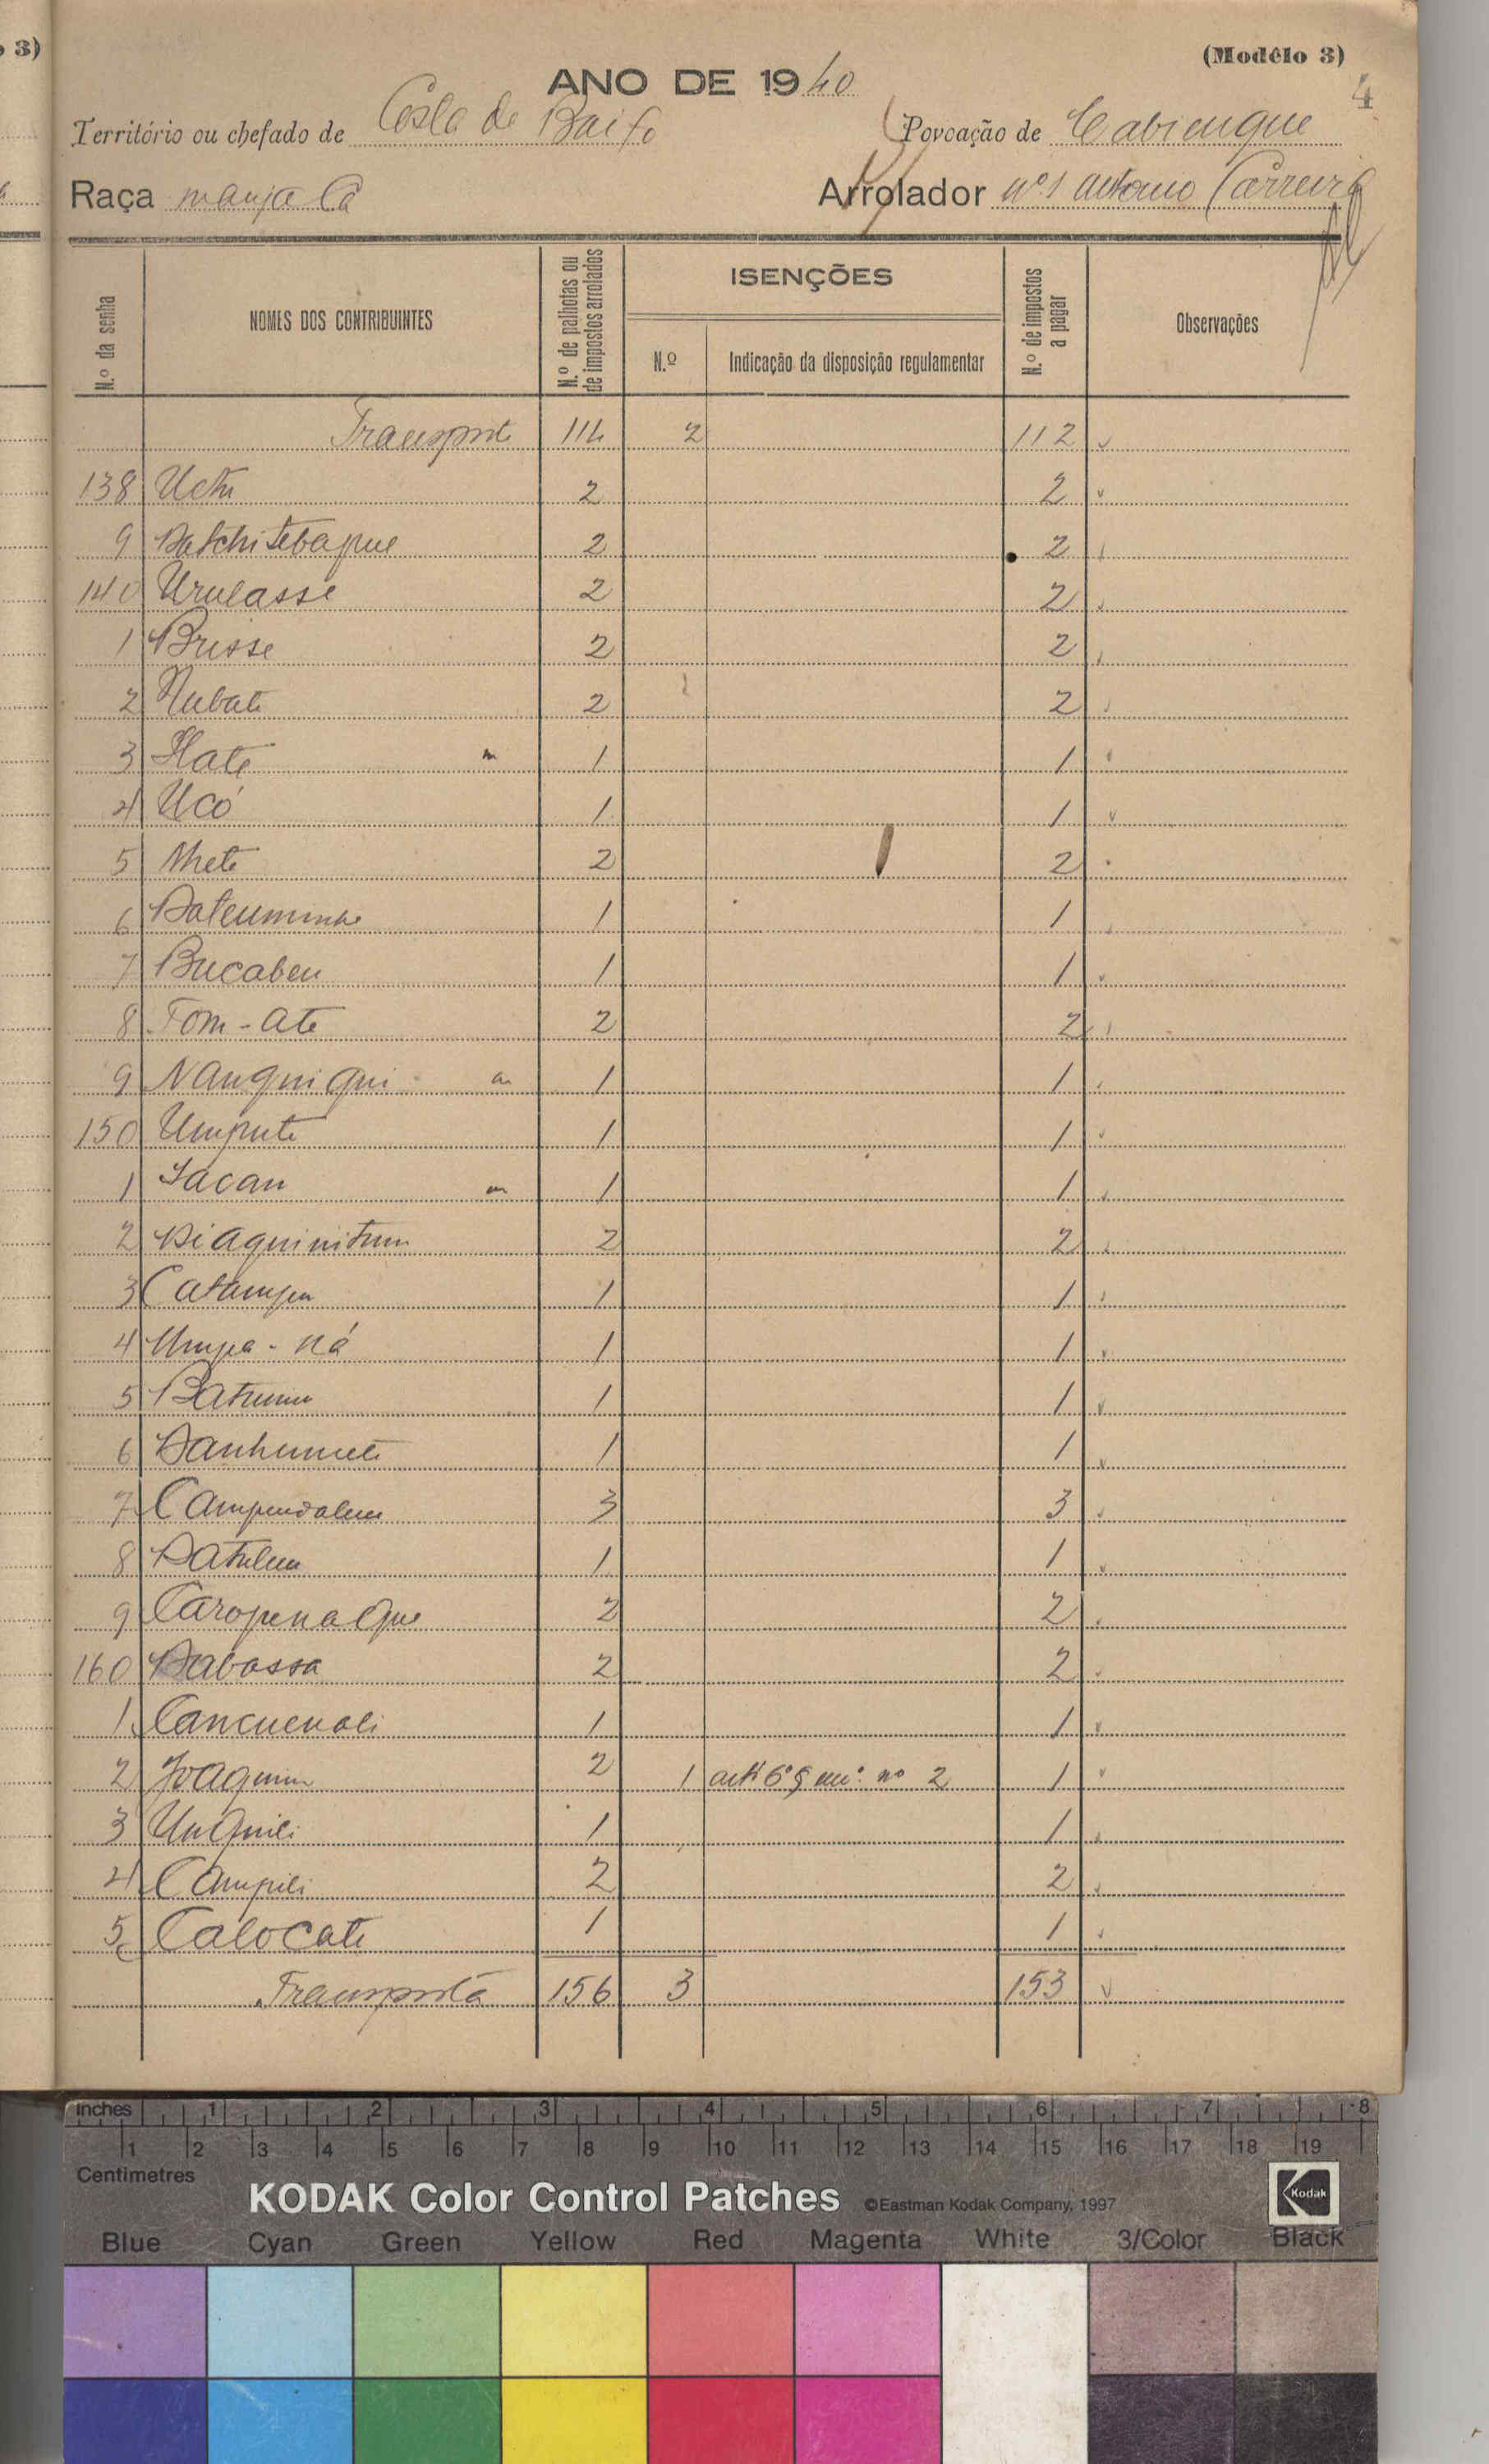 3)
(Modêlo 3)
4
ANO DE 1940
Território ou chefado de Costa de Baixo Povoação de Cabienque
Raça manjaca Arrolador nº 1 Antonio Carreira
N.º da senha
NOMES DOS CONTRIBUINTES
N.º de palhotas ou de impostos arrolados
ISENÇÕES
N.º
Indicação da disposição regulamentar
N.º de impostos a pagar
Observações
Transporte 114 2 112
138 2 2
9 Datchitebapue 2 2
140 Urulasse 2 2
1 Brisse 2 2
2 Nubate 2 2
3 1 1
4 Ucó 1 1
5 2 2
6 1 1
7 Bucabeu 1 1
8 Tom-ate 2 2
9 Nanquiqui 1 1
150 Umpute 1 1
1 Sacan 1 1
2 2 2
3 1 1
4 Umpa-ná 1 1
5 1 1
6 Danhumete 1 1
7 3 3
8 1 1
9 Caropenaque 2 2
160 Dabassa 2 2
1 Cancuenali 1 1
2 Joaquim 2 1 artº 6º § uni. nº 2 1
3 Unquili 1 1
4 Campili 2 2
5 Calocate 1 1
Transporta 156 3 153
inches 1 2 3 4 5 6 7 8
1 2 3 4 5 6 7 8 9 10 11 12 13 14 15 16 17 18 19
Centimetres
KODAK Color Control Patches ©Eastman Kodak Company, 1997 Kodak
Blue Cyan Green Yellow Red Magenta White 3/Color Black